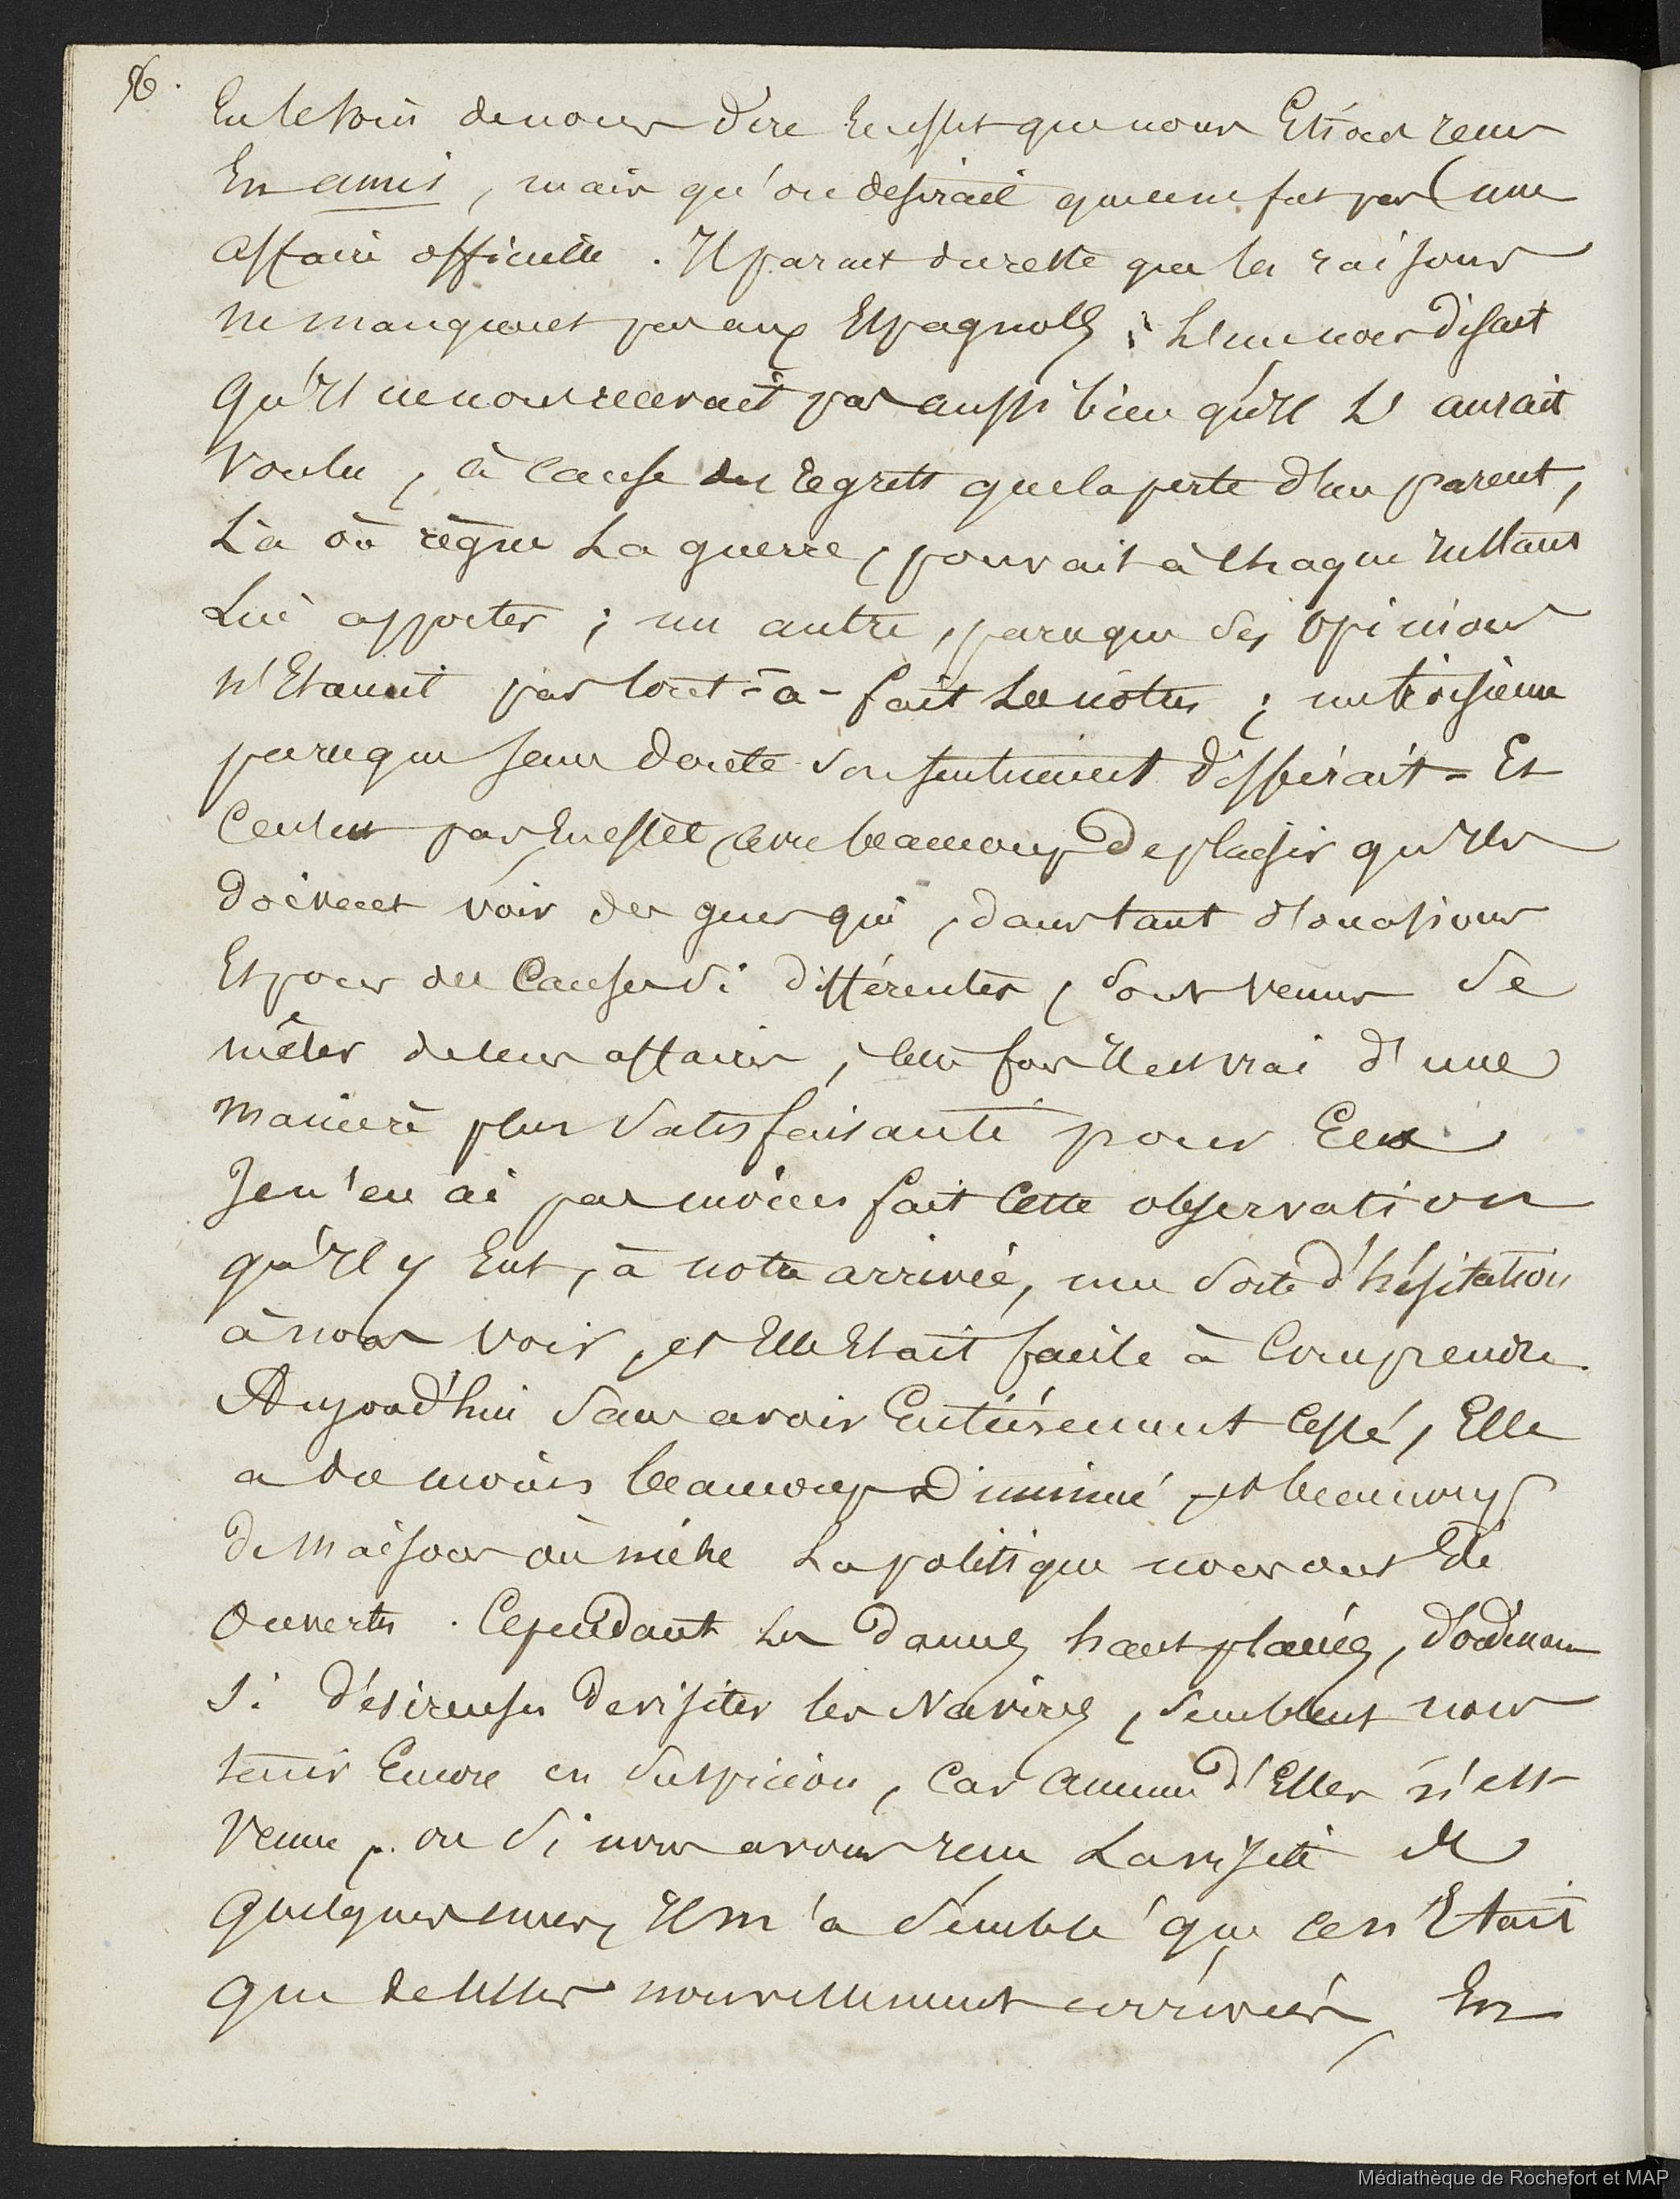 96.
Eu le soin de nous dire en effet que nous Etions reçus
En amis, mais qu'on desirait que ce ne fut pas une
affaire officielle. Il parait du reste que les raisons
ne manquent pas aux Espagnols : L'un nous disait
qu'Il ne nous recevait pas aussi bien qu'Il L'aurait
voulu, à Cause des regrets que la perte d'un parent,
Là où règne La guerre, pouvait à Chaque Instant
Lui apporter ; un autre, parceque ses opinions
n'Etaient pas tout-à-fait Les nôtres ; un troisième
parceque sans doute son sentiment différait. Et
Ce n'est pas En effet avec beaucoup de plaisir qu'Ils
doivent voir des gens qui, dans tant d'occasions
Et pour des Causes si différentes, sont venus se
mêler de leurs affaires, cette fois Il est vrai d'une
manière plus satisfaisante pour Eux
Je n'en ai pas moins fait Cette observation
qu'Il y Eut, à notre arrivée, une sorte d'hésitation
à nous voir, et Elle Etait facile à Comprendre.
Aujourd'hui sans avoir Entièrement Cessé, Elle
a du moins beaucoup diminué, et beaucoup
de Maisons où niche La politique nous ont Eté
Ouvertes. Cependant Les dames haut placées, d'ordinaire
si désireuses de visiter les Navires, semblent nous
tenir Encore en suspicion, Car aucune d'Elles n'est
venue, ou si nous avons reçu La visite de
quelques unes, Il m'a semblé que Ce n'Etait
que de Celles nouvellement arrivées, En
Médiathèque de Rochefort et MAP